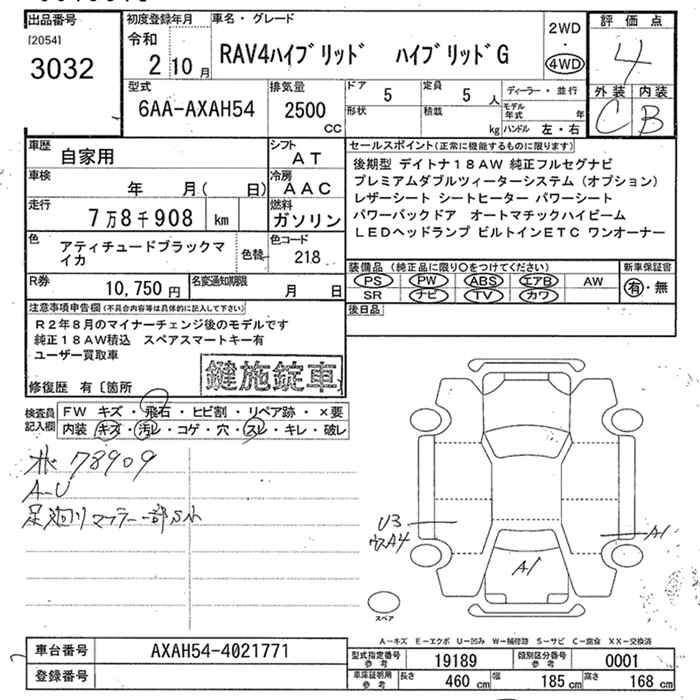 出品番号
[2054]
3032
初度登録年月
令和
2 10 月
車名・グレード
RAV4ハイブリッド ハイブリッドG
2WD
・
4WD
評価点
4
外装 内装
C B
型式
6AA-AXAH54
排気量
2500
CC
ドア
5
定員
5 人
ディーラー・並行
形状
積載
kg
モデル年式 年
ハンドル 左・右
車歴
自家用
シフト
AT
車検
年 月( 日)
冷房
AAC
走行
7万8千908 km
燃料
ガソリン
色
アティチュードブラックマイカ
色替
色コード
218
R券
10,750円
名変通知期限
月 日
セールスポイント(正常に機能するものに限ります)
後期型 デイトナ18AW 純正フルセグナビ
プレミアムダブルツィーターシステム(オプション)
レザーシート シートヒーター パワーシート
パワーバックドア オートマチックハイビーム
LEDヘッドランプ ビルトインETC ワンオーナー
装備品(純正品に限り○をつけてください)
PS PW ABS エアB AW
SR ナビ TV カワ
新車保証書
有・無
後日品
注意事項申告欄(不具合内容等は具体的に記入して下さい)
R2年8月のマイナーチェンジ後のモデルです
純正18AW積込 スペアスマートキー有
ユーザー買取車
鍵施錠車
修復歴 有〔箇所
検査員記入欄
FW キズ・飛石・ヒビ割・リペア跡・×要
内装 キズ・汚レ・コゲ・穴・スレ・キレ・破レ
78909
A-U
足廻りマフラー一部サビ
U3
A4
A1
A1
スペア
A-キズ E-エクボ U-凹み W-補修跡 S-サビ C-腐食 XX-交換済
車台番号
AXAH54-4021771
登録番号
型式指定番号 参考
19189
類別区分番号 参考
0001
車庫証明用 参考
長さ 460 cm 幅 185 cm 高さ 168 cm